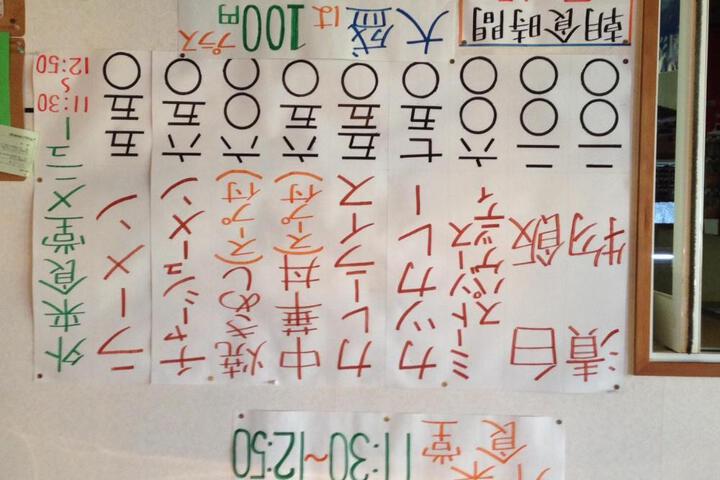 外来食堂
11:30~12:50
外来食堂メニュー 11:30~12:50
ラーメン 五五〇
チャーシューメン 六五〇
焼きめし(スープ付) 六〇〇
中華丼(スープ付) 六五〇
カレーライス 五五〇
カツカレー 七五〇
ミートスパゲッティ 六〇〇
白飯 二〇〇
漬物 二〇〇
大盛は100円プラス
朝食時間